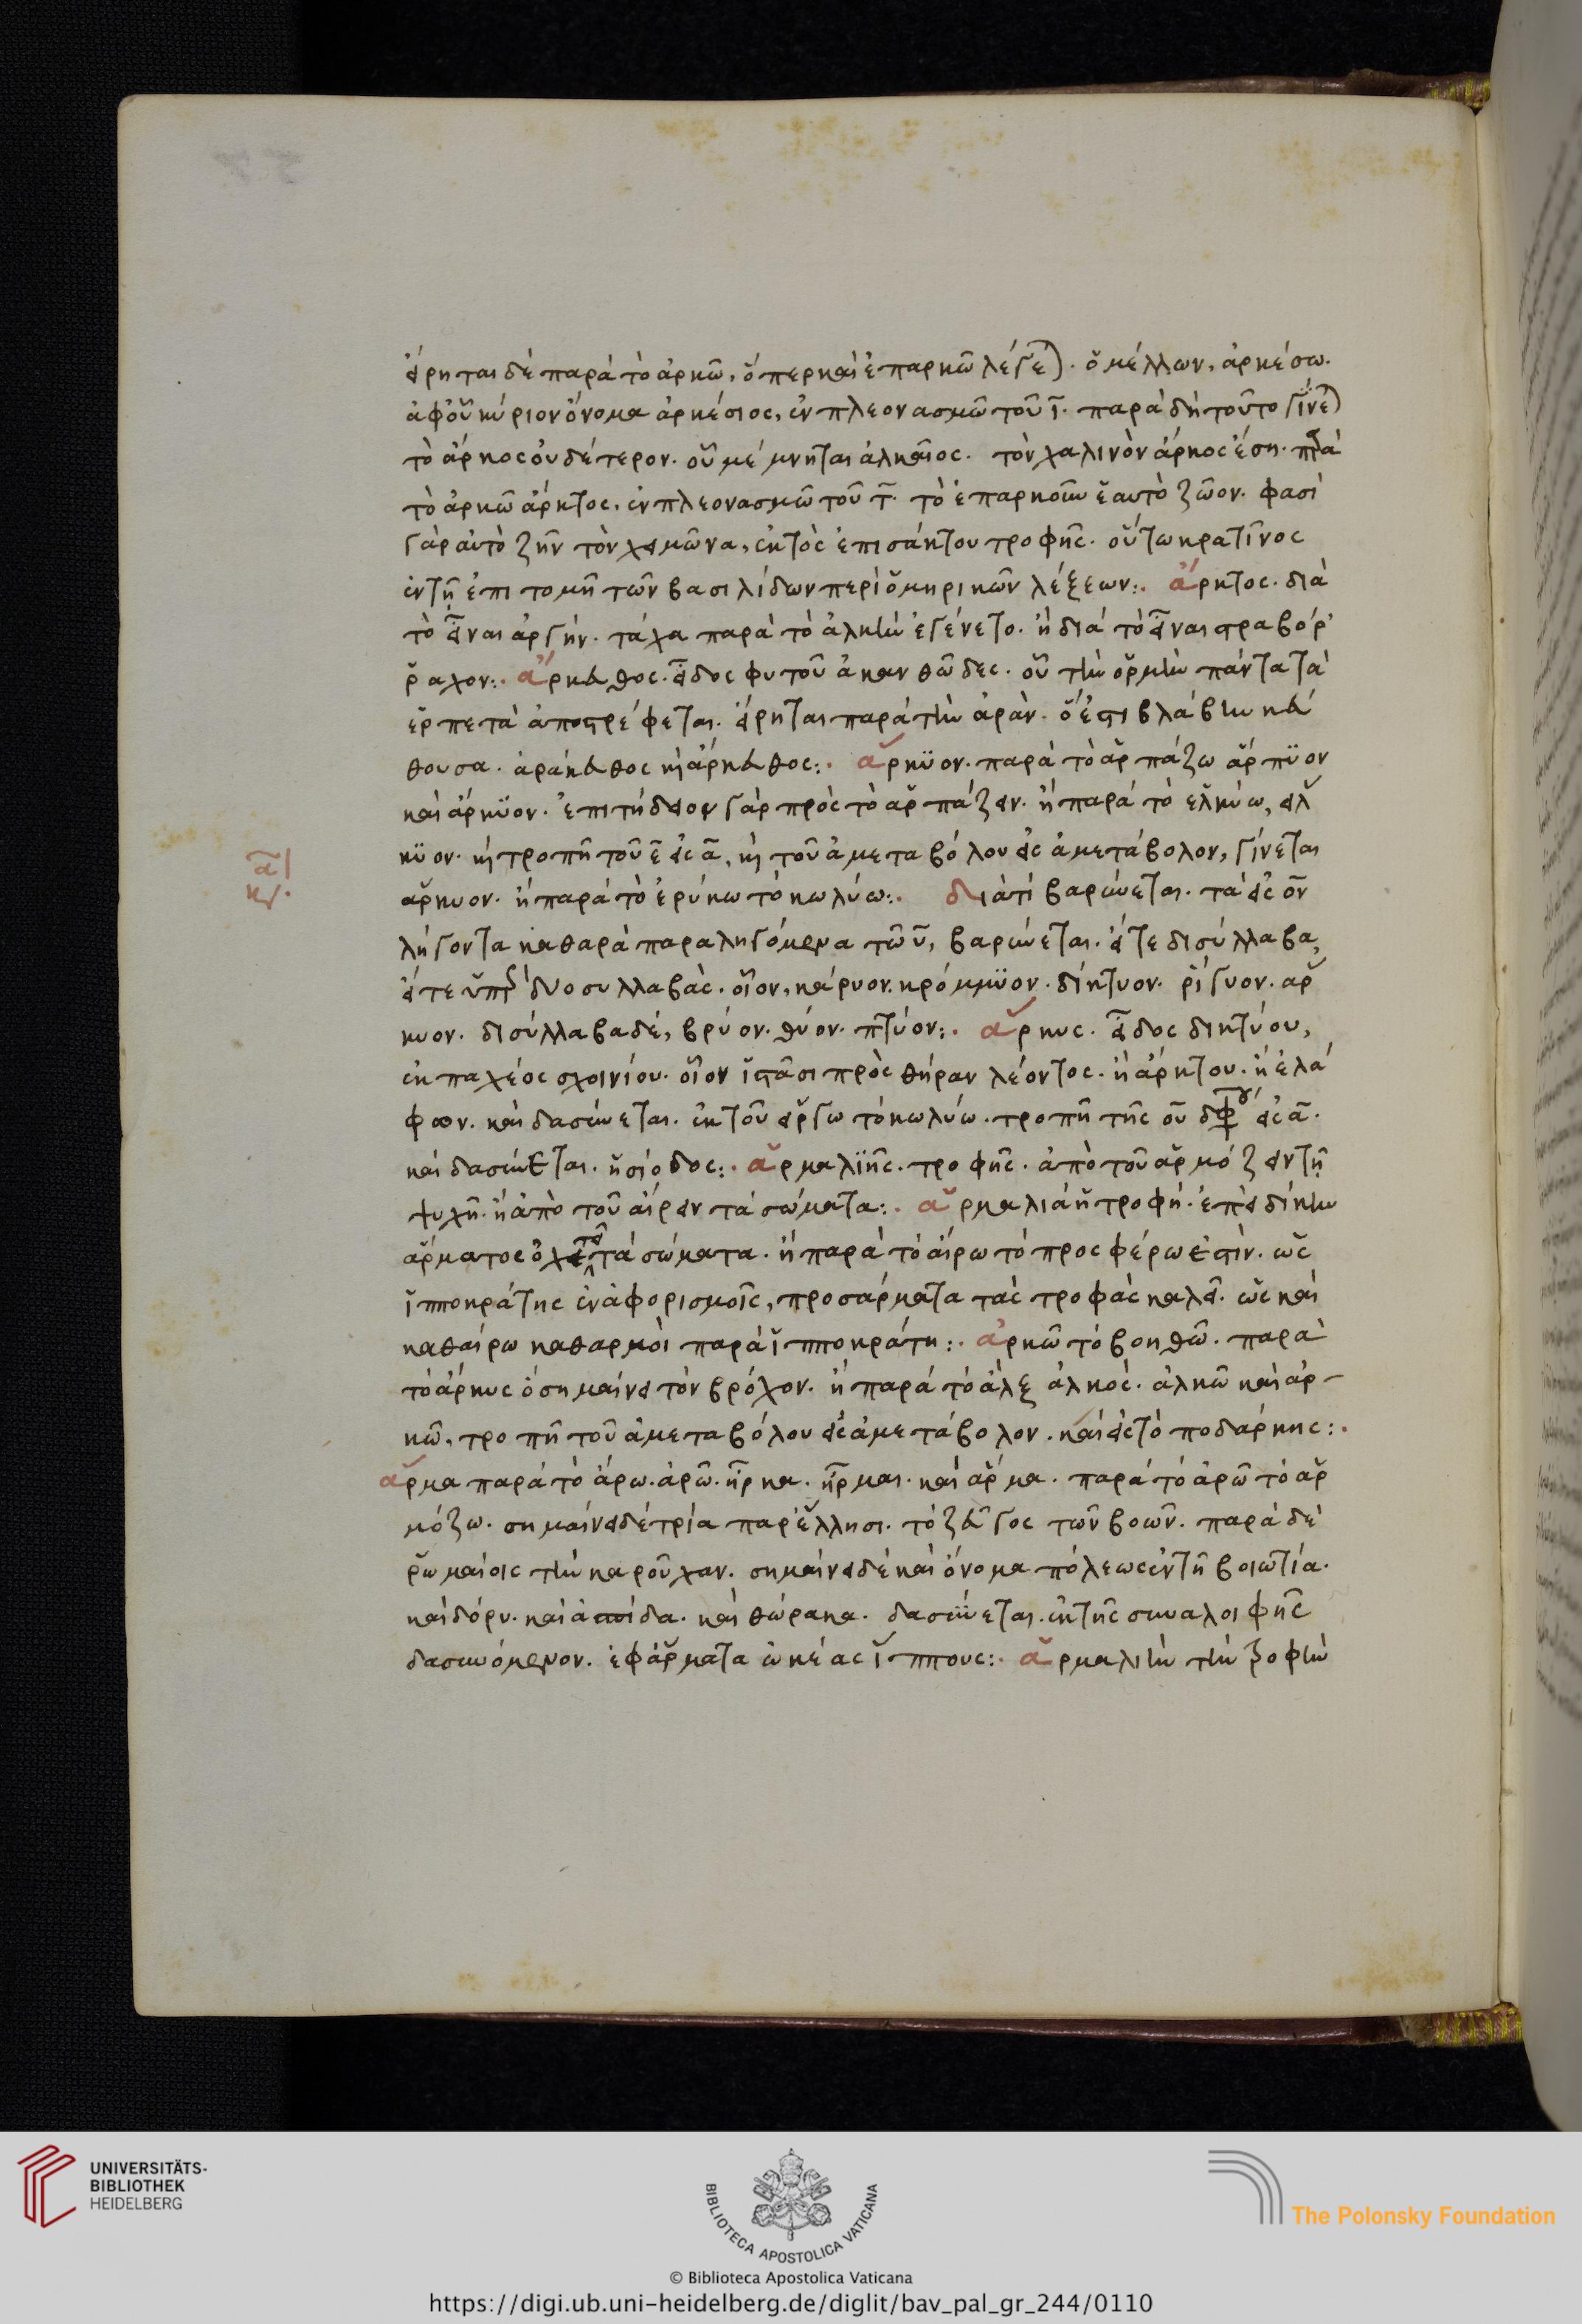 εἴρηται δὲ παρὰ τὸ ἀρκῶ, ὅπερ καὶ ἐπαρκῶ λέγεται. ὁ μέλλων, ἀρκέσω.
ἀφ' οὗ κύριον ὄνομα ἀρκέσιος, ἐν πλεονασμῶ τοῦ ῑ. παρὰ δὴ τοῦτο γίνεται
τὸ ἄρκος οὐδέτερον. οὗ μέμνηται ἀλκαῖος. τὸν χαλινὸν ἄρκος ἔση. παρὰ
τὸ ἀρκῶ ἄρκτος, ἐν πλεονασμῶ τοῦ τ̄. τὸ ἐπαρκοῦν ἑαυτὸ ζῶον. φασὶ
γὰρ αὐτὸ ζῆν τὸν χειμῶνα, ἐκτὸς ἐπισάκτου τροφῆς. οὕτω κρατῖνος
ἐν τῆ ἐπιτομῆ τῶν βασιλίδων περὶ ὁμηρικῶν λέξεων:. ἄρκτος. διὰ
τὸ εἶναι ἀργήν. τάχα παρὰ τὸ ἀλκὴν ἐγένετο. ἢ διὰ τὸ εἶναι στραβόρ
ραχον:. ἄρκευθος. εἶδος φυτοῦ ἀκανθῶδες. οὗ τὴν ὁρμὴν πάντα τὰ
ἑρπετὰ ἀποστρέφεται. εἴρηται παρὰ τὴν ἀρὰν. ὅ ἐστι βλάβην κεύ
θουσα. ἀράκευθος καὶ ἄρκευθος:. ἄρκϋον. παρὰ τὸ ἁρπάζω ἅρπϋον
καὶ ἄρκϋον. ἐπιτήδειον γὰρ πρὸς τὸ ἁρπάζειν. ἢ παρὰ τὸ ἑλκύω, εἱλ
κϋον. καὶ τροπῆ τοῦ ε̄ εἰς ᾱ, καὶ τοῦ ἀμεταβόλου εἰς ἀμετάβολον, γίνεται
ἅρκυον. ἢ παρὰ τὸ ἐρύκω τὸ κωλύω:. διατί βαρύνεται. τὰ εἰς ον
λήγοντα καθαρὰ παραληγόμενα τῶ ῡ, βαρύνεται. εἴτε δισύλλαβα,
εἴτε ὑπὲρ δύο συλλαβὰς. οἷον, κάρυον. κρόμμϋον. δίκτυον. ῥίγυον. ἅρ
κυον. δισύλλαβα δέ, βρύον. θύον. πτύον:. ἄρκυς. εἶδος δικτύου,
ἐκ παχέος σχοινίου. οἷον ἱστᾶσι πρὸς θήραν λέοντος. ἢ ἄρκτου. ἢ ἐλά
φων. καὶ δασύνεται. ἐκ τοῦ εἵργω τὸ κωλύω. τροπῆ τῆς ου διφθόγγου εἰς ᾱ.
καὶ δασύνεται. ἡσίοδος:. ἁρμαλϊῆς. τροφῆς. ἀπὸ τοῦ ἁρμόζειν τῆ
ψυχῆ. ἢ ἀπὸ τοῦ αἴρειν τὰ σώματα:. ἁρμαλιὰ ἡ τροφή. ἐπεὶ δίκην
ἅρματος ὀχεῖται τὰ σώματα. ἢ παρὰ τὸ αἴρω τὸ προσφέρω ἐστὶν. ὡς
ἱπποκράτης ἐν ἀφορισμοῖς, προσάρματα τὰς τροφὰς καλεῖ. ὡς καὶ
καθαίρω καθαρμοὶ παρὰ ἱπποκράτη:. ἀρκῶ τὸ βοηθῶ. παρὰ
τὸ ἄρκυς ὁ σημαίνει τὸν βρόχον. ἢ παρὰ τὸ ἀλξ ἀλκὸς. ἀλκῶ καὶ ἀρ-
κῶ. τροπῆ τοῦ ἀμεταβόλου εἰς ἀμετάβολον. καὶ εἰς τὸ ποδάρκης:.
ἅρμα παρὰ τὸ ἄρω. ἀρῶ. ἦρκα. ἦρμαι. καὶ ἅρμα. παρὰ τὸ ἀρῶ τὸ ἁρ
μόζω. σημαίνει δὲ τρία παρ' ἕλλησι. τὸ ζεῦγος τῶν βοῶν. παρὰ δὲ
ῥωμαίοις τὴν καροῦχαν. σημαίνει δὲ καὶ ὄνομα πόλεως ἐν τῆ βοιωτία.
καὶ δόρυ. καὶ ἀσπίδα. καὶ θώρακα. δασύνεται. ἐκ τῆς συναλοιφῆς
δασυνόμενον. ἐφ' ἅρματα ὠκέας ἵππους:. ἁρμαλιὴν τὴν τροφὴν
UNIVERSITÄTS-
BIBLIOTHEK
HEIDELBERG
BIBLIOTECA APOSTOLICA VATICANA
The Polonsky Foundation
© Biblioteca Apostolica Vaticana
https://digi.ub.uni-heidelberg.de/diglit/bav_pal_gr_244/0110